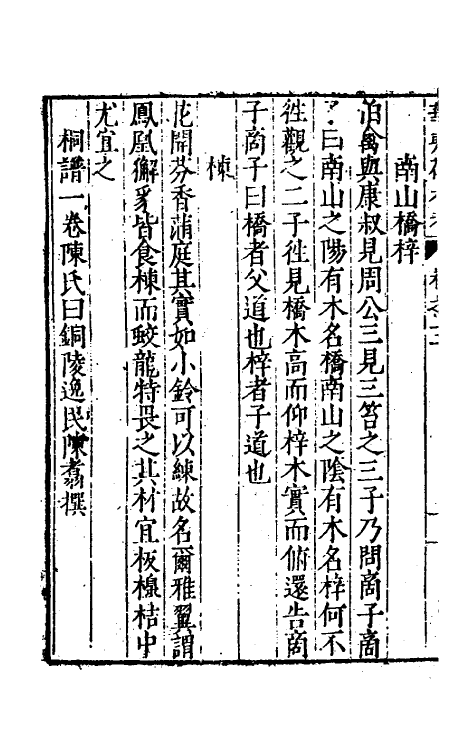 南山橋梓
伯禽與康叔見周公三見三笞之三子乃問商子商
子曰南山之陽有木名橋南山之陰有木名梓何不
徃觀之二子徃見橋木高而仰梓木實而俯還告商
子商子曰橋者父道也梓者子道也
楝
花開芬香滿庭其實如小鈴可以練故名爾雅翼謂
鳳凰獬豸皆食楝而蛟龍特畏之其材宜板槵桔中
尤宜之
桐譜一卷陳氏曰銅陵逸民陳翥撰